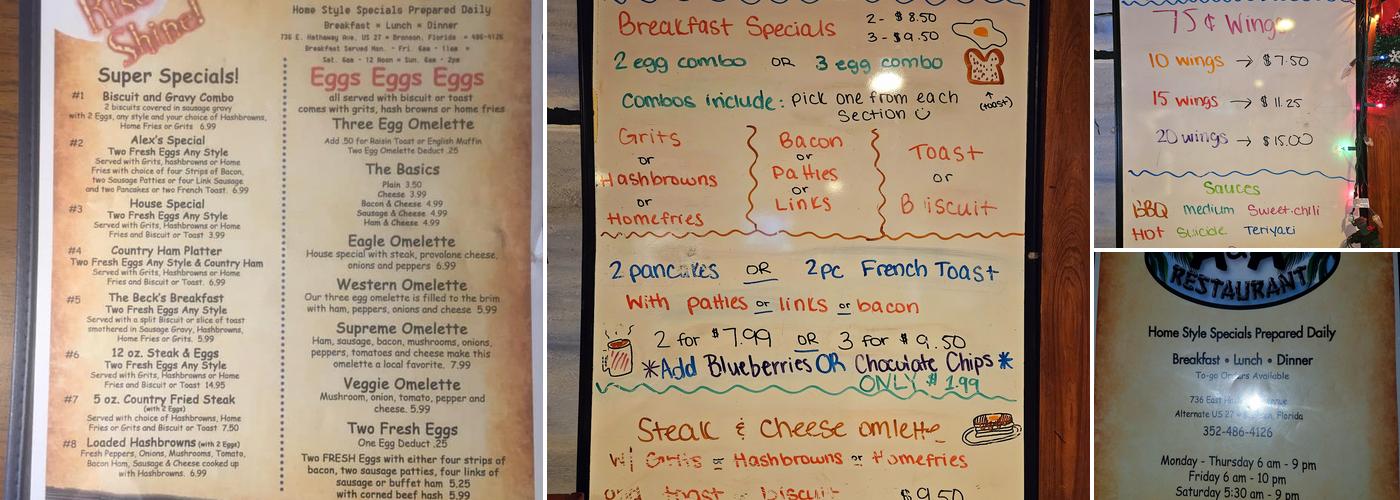 Rise
Shine!
Super Specials!
#1 Biscuit and Gravy Combo
2 biscuits covered in sausage gravy
with 2 Eggs, any style and your choice of Hashbrowns,
Home Fries or Grits 6.99
#2 Alex's Special
Two Fresh Eggs Any Style
Served with Grits, hashbrowns or Home
Fries with choice of four Strips of Bacon,
two Sausage Patties or four Link Sausage
and two Pancakes or two French Toast. 6.99
#3 House Special
Two Fresh Eggs Any Style
Served with Grits, Hashbrowns or Home
Fries and Biscuit or Toast 3.99
#4 Country Ham Platter
Two Fresh Eggs Any Style & Country Ham
Served with Grits, Hashbrowns or Home
Fries and Biscuit or Toast. 6.99
#5 The Beck's Breakfast
Two Fresh Eggs Any Style
Served with a split Biscuit or slice of toast
smothered in Sausage Gravy, Hashbrowns,
Home Fries or Grits. 5.99
#6 12 oz. Steak & Eggs
Two Fresh Eggs Any Style
Served with Grits, Hashbrowns or Home
Fries and Biscuit or Toast 14.95
#7 5 oz. Country Fried Steak
(with 2 Eggs)
Served with choice of Hashbrowns, Home
Fries or Grits and Biscuit or Toast 7.50
#8 Loaded Hashbrowns (with 2 Eggs)
Fresh Peppers, Onions, Mushrooms, Tomato,
Bacon Ham, Sausage & Cheese cooked up
with Hashbrowns. 6.99
Home Style Specials Prepared Daily
Breakfast • Lunch • Dinner
736 E. Hathaway Ave. US 27 • Bronson, Florida • 486-4126
Breakfast Served Mon. - Fri. 6am - 11am •
Sat. 6am - 12 Noon • Sun. 6am - 2pm
Eggs Eggs Eggs
all served with biscuit or toast
comes with grits, hash browns or home fries
Three Egg Omelette
Add .50 for Raisin Toast or English Muffin
Two Egg Omelette Deduct .25
The Basics
Plain 3.50
Cheese 3.99
Bacon & Cheese 4.99
Sausage & Cheese 4.99
Ham & Cheese 4.99
Eagle Omelette
House special with steak, provolone cheese,
onions and peppers 6.99
Western Omelette
Our three egg omelette is filled to the brim
with ham, peppers, onions and cheese 5.99
Supreme Omelette
Ham, sausage, bacon, mushrooms, onions,
peppers, tomatoes and cheese make this
omelette a local favorite. 7.99
Veggie Omelette
Mushroom, onion, tomato, pepper and
cheese. 5.99
Two Fresh Eggs
One Egg Deduct .25
Two FRESH Eggs with either four strips of
bacon, two sausage patties, four links of
sausage or buffet ham 5.25
with corned beef hash 5.99
Breakfast Specials 2- $8.50
3- $9.50
2 egg combo OR 3 egg combo
Combos include: pick one from each
section
(toast)
Grits
or
Hashbrowns
or
Homefries
Bacon
or
Patties
or
Links
Toast
or
Biscuit
2 pancakes OR 2pc French Toast
With patties or links or bacon
2 for $7.99 OR 3 for $9.50
*Add Blueberries OR Chocolate Chips*
ONLY $1.99
Steak & Cheese omlette
w/ Grits or Hashbrowns or Homefries
and toast or biscuit $9.50
75¢ Wings
10 wings → $7.50
15 wings → $11.25
20 wings → $15.00
Sauces
BBQ Medium Sweet-chili
Hot Suicide Teriyaki
RESTAURANT
Home Style Specials Prepared Daily
Breakfast • Lunch • Dinner
To-go Orders Available
736 East
Alternate US 27 Florida
352-486-4126
Monday - Thursday 6 am - 9 pm
Friday 6 am - 10 pm
Saturday 5:30 am - 9 pm